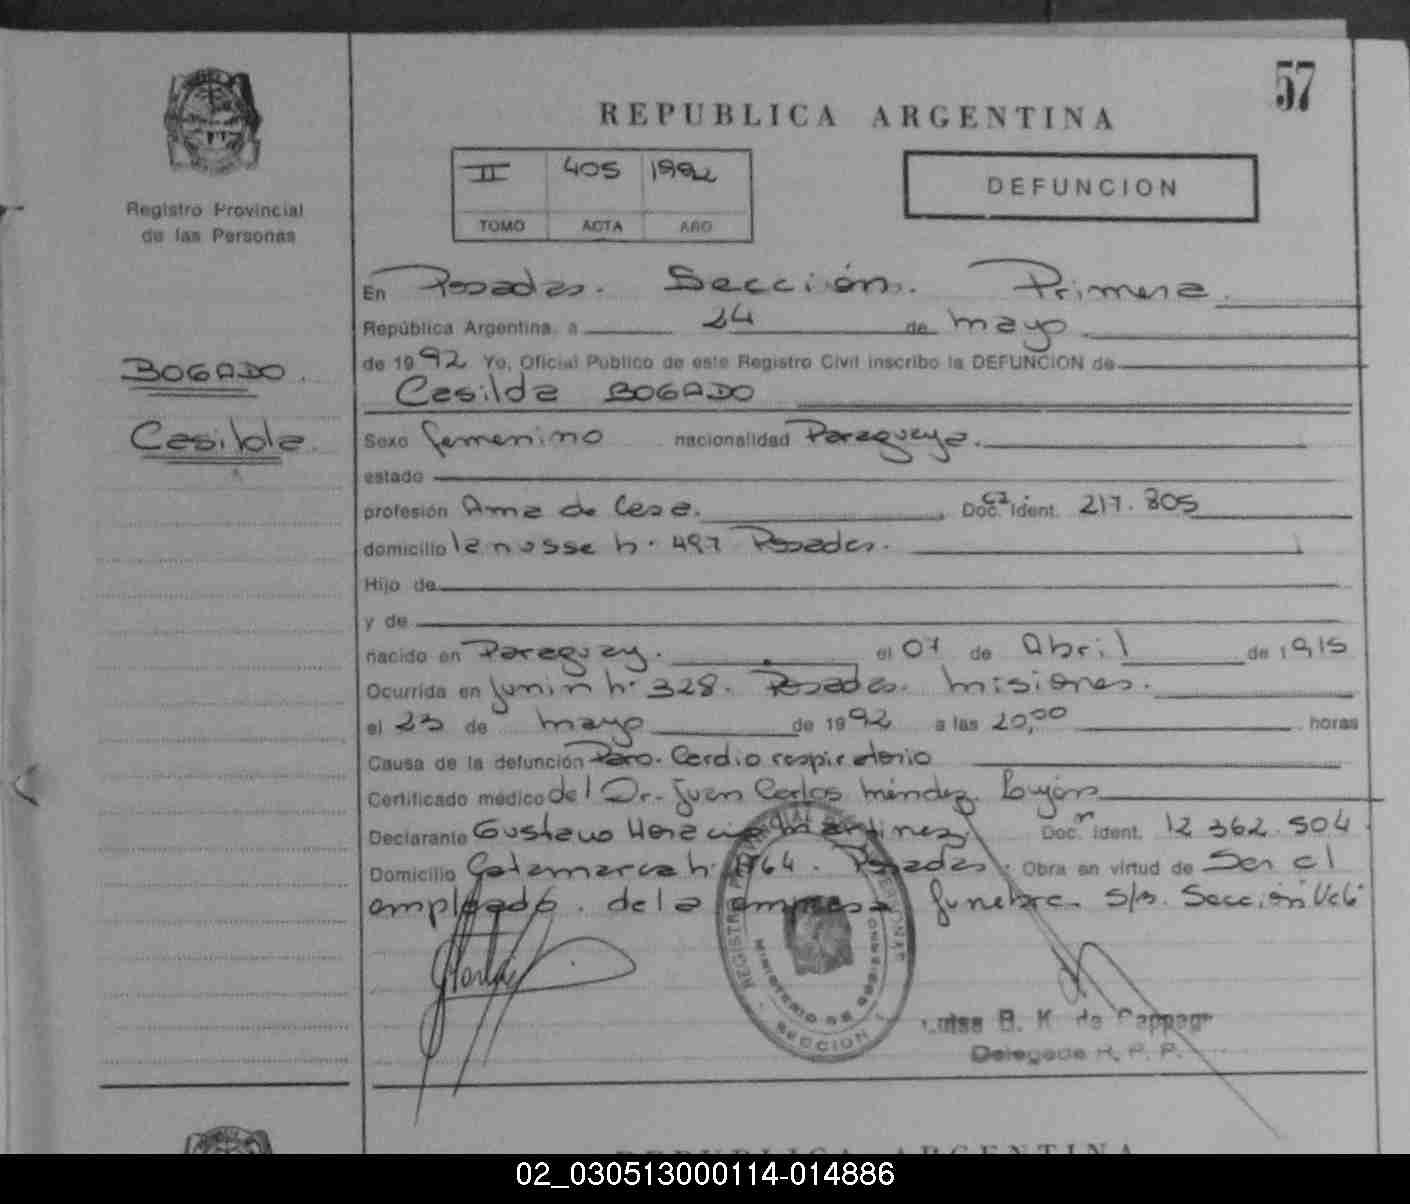 57
REPUBLICA ARGENTINA
II 405 1992
TOMO ACTA AÑO
DEFUNCION
Registro Provincial
de las Personas
BOGADO
Casilda.
En Posadas. Sección. Primera.
República Argentina, a 24 de mayo
de 1992 Yo, Oficial Público de este Registro Civil inscribo la DEFUNCION de
Casilda BOGADO
Sexo femenino nacionalidad Paraguaya.
estado
profesión Ama de Casa. Doc. Ident. 217.805
domicilio Lanusse n. 497 Posadas.
Hijo de
y de
nacido en Paraguay. el 07 de Abril de 1915
Ocurrida en Junin n. 328. Posadas. Misiones.
el 23 de mayo de 1992 a las 20,00 horas
Causa de la defunción Paro. Cardio respiratorio
Certificado médico del Dr. Juan Carlos Méndez. Luján
Declarante Gustavo Horacio Martinez. Doc. Ident. 12.362.504
Domicilio Catamarca n. Posadas. Obra en virtud de Ser el
empleado. de la empresa funebre. s/n. Sección
MINISTERIO DE GOBIERNO
SECCION 1
Luisa B. K. de
Delegada R. P. P.
REPUBLICA ARGENTINA
02_030513000114-014886